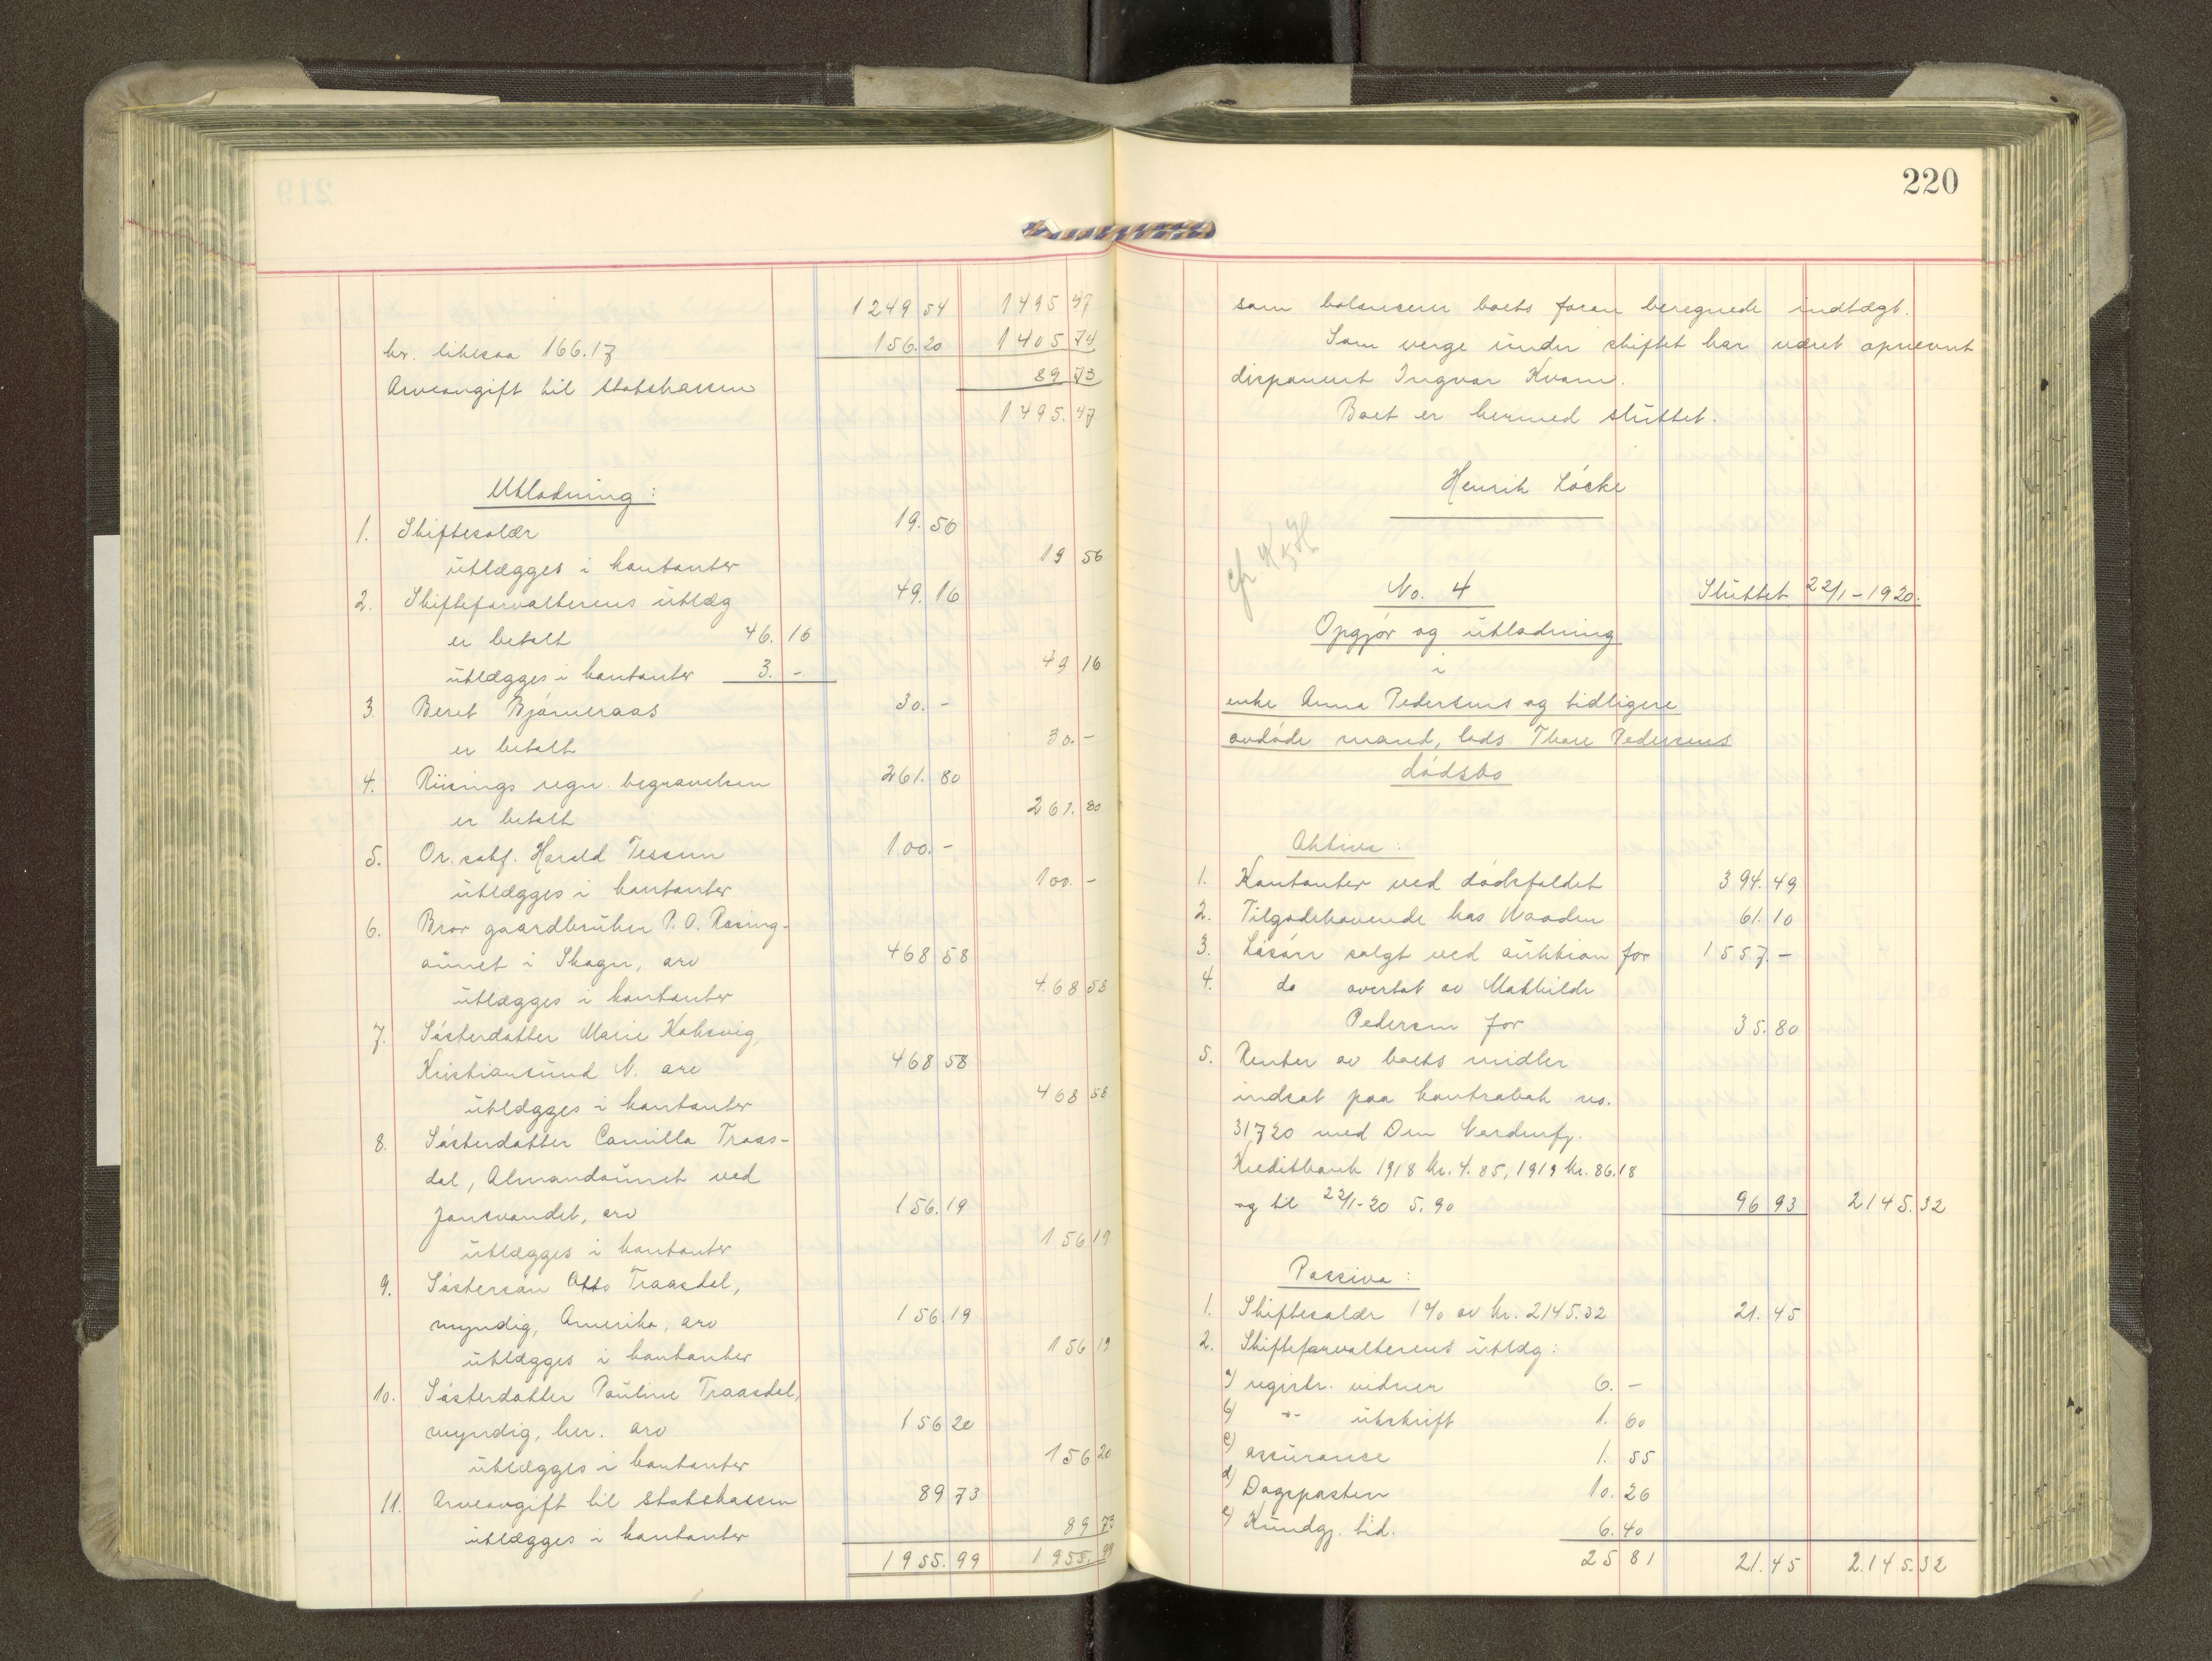 1249 54 1495 47
kr. likesaa 166.17 156.20 1405 74
Arveavgift til statskassen 89 73
1495.47
Utlodning:
1. Skiftesalær 19.56
utlægges i kontanter 19 56
2. Skifteforvalterens utlæg 49.16
er betalt 46.16
utlægges i kontanter 3.- 49 16
3. Beret Bjørneraas 30.-
er betalt 30.-
4. Riisings regn. begravelsen 261.80
er betalt 261.80
5. Or. sakf. Harald Tessem 100.-
utlægges i kontanter 100.-
6. Bror gaardbruker P. O. Rosing-
aunet i Skogn, arv 468 58
utlægges i kontanter 468 58
7. Søsterdatter Marie Kaksvig,
Kristiansund N. arv 468 58
utlægges i kontanter 468 58
8. Søsterdatter Camilla Traas-
dal, Almandaunet ved
Jonsvandet, arv 156.19
utlægges i kontanter 156 19
9. Søstersøn Otto Traasdal,
myndig, Amerika, arv 156.19
utlægges i kontanter 156 19
10. Søsterdatter Pauline Traasdal,
myndig, her. arv 156 20
utlægges i kontanter 156 20
11. Arveavgift til statskassen 89 73
utlægges i kontanter 89 73
1955.99 1955.99
220
som balanserer boets foran beregnede indtægt.
Som verge under skiftet har været opnevnt
disponent Ingvar Kvam.
Boet er hermed sluttet.
Henrik Løcke
No. 4 Sluttet 22/1-1920.
Opgjør og utlodning
i
enke Anna Pedersens og tidligere
avdøde mand, lods Thore Pedersens
dødsbo
Aktiva:
1. Kontanter ved dødsfaldet 394.49
2. Tilgodehavende hos Waaden 61.10
3. Løsøre solgt ved auktion for 1557.-
4. do overtat av Mathilde
Pedersen for 35.80
5. Renter av boets midler
indsat paa kontrabok no.
31720 med Den Nordenfj.
Kreditbank 1918 kr. 4.85, 1919 kr. 86.18
og til 22/1-20 5.90 96 93 2145.32
Passiva:
1. Skiftesalær 1% av kr. 2145.32 21.45
2. Skifteforvalterens utlæg:
a) registr. vidner 6.-
b) -"- utskrift 1.60
c) assurance 1.55
d) Dagsposten 10.26
e) Kundgj. tid. 6.40
25 81 21.45 2.145.32